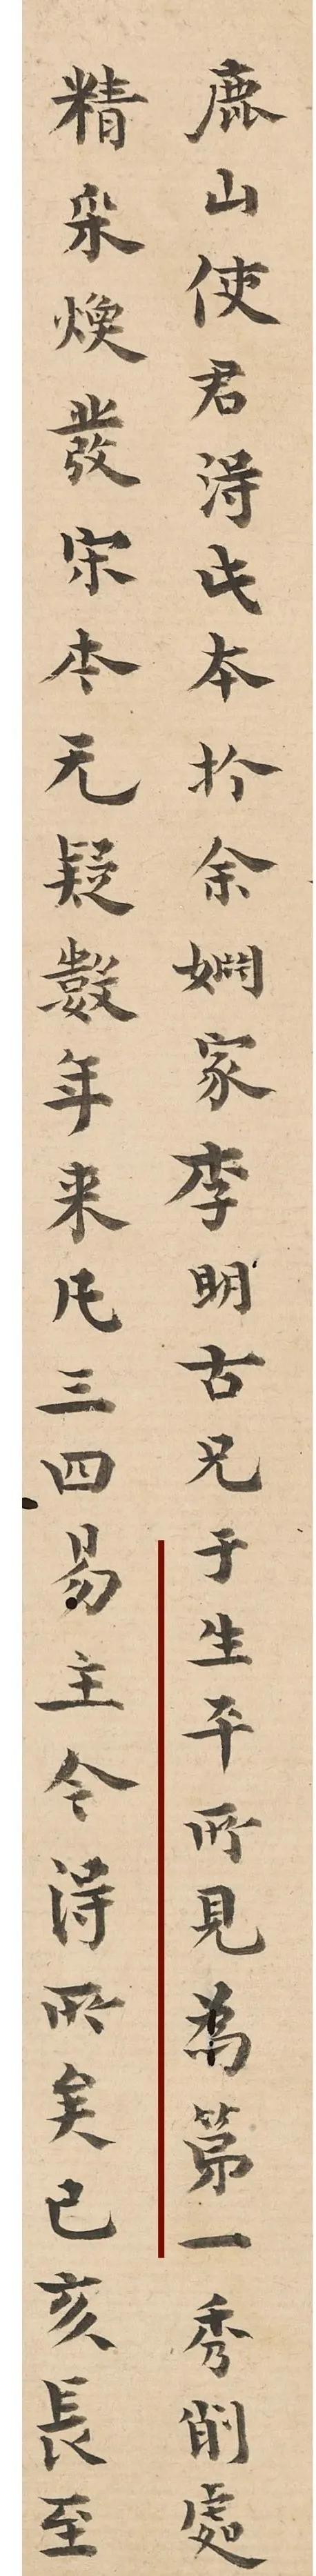 鹿山使君得此本於余嫻家李明古兄于生平所見為第一秀削處
精采煥發宋本无疑數年来凡三四易主今得所矣己亥長至